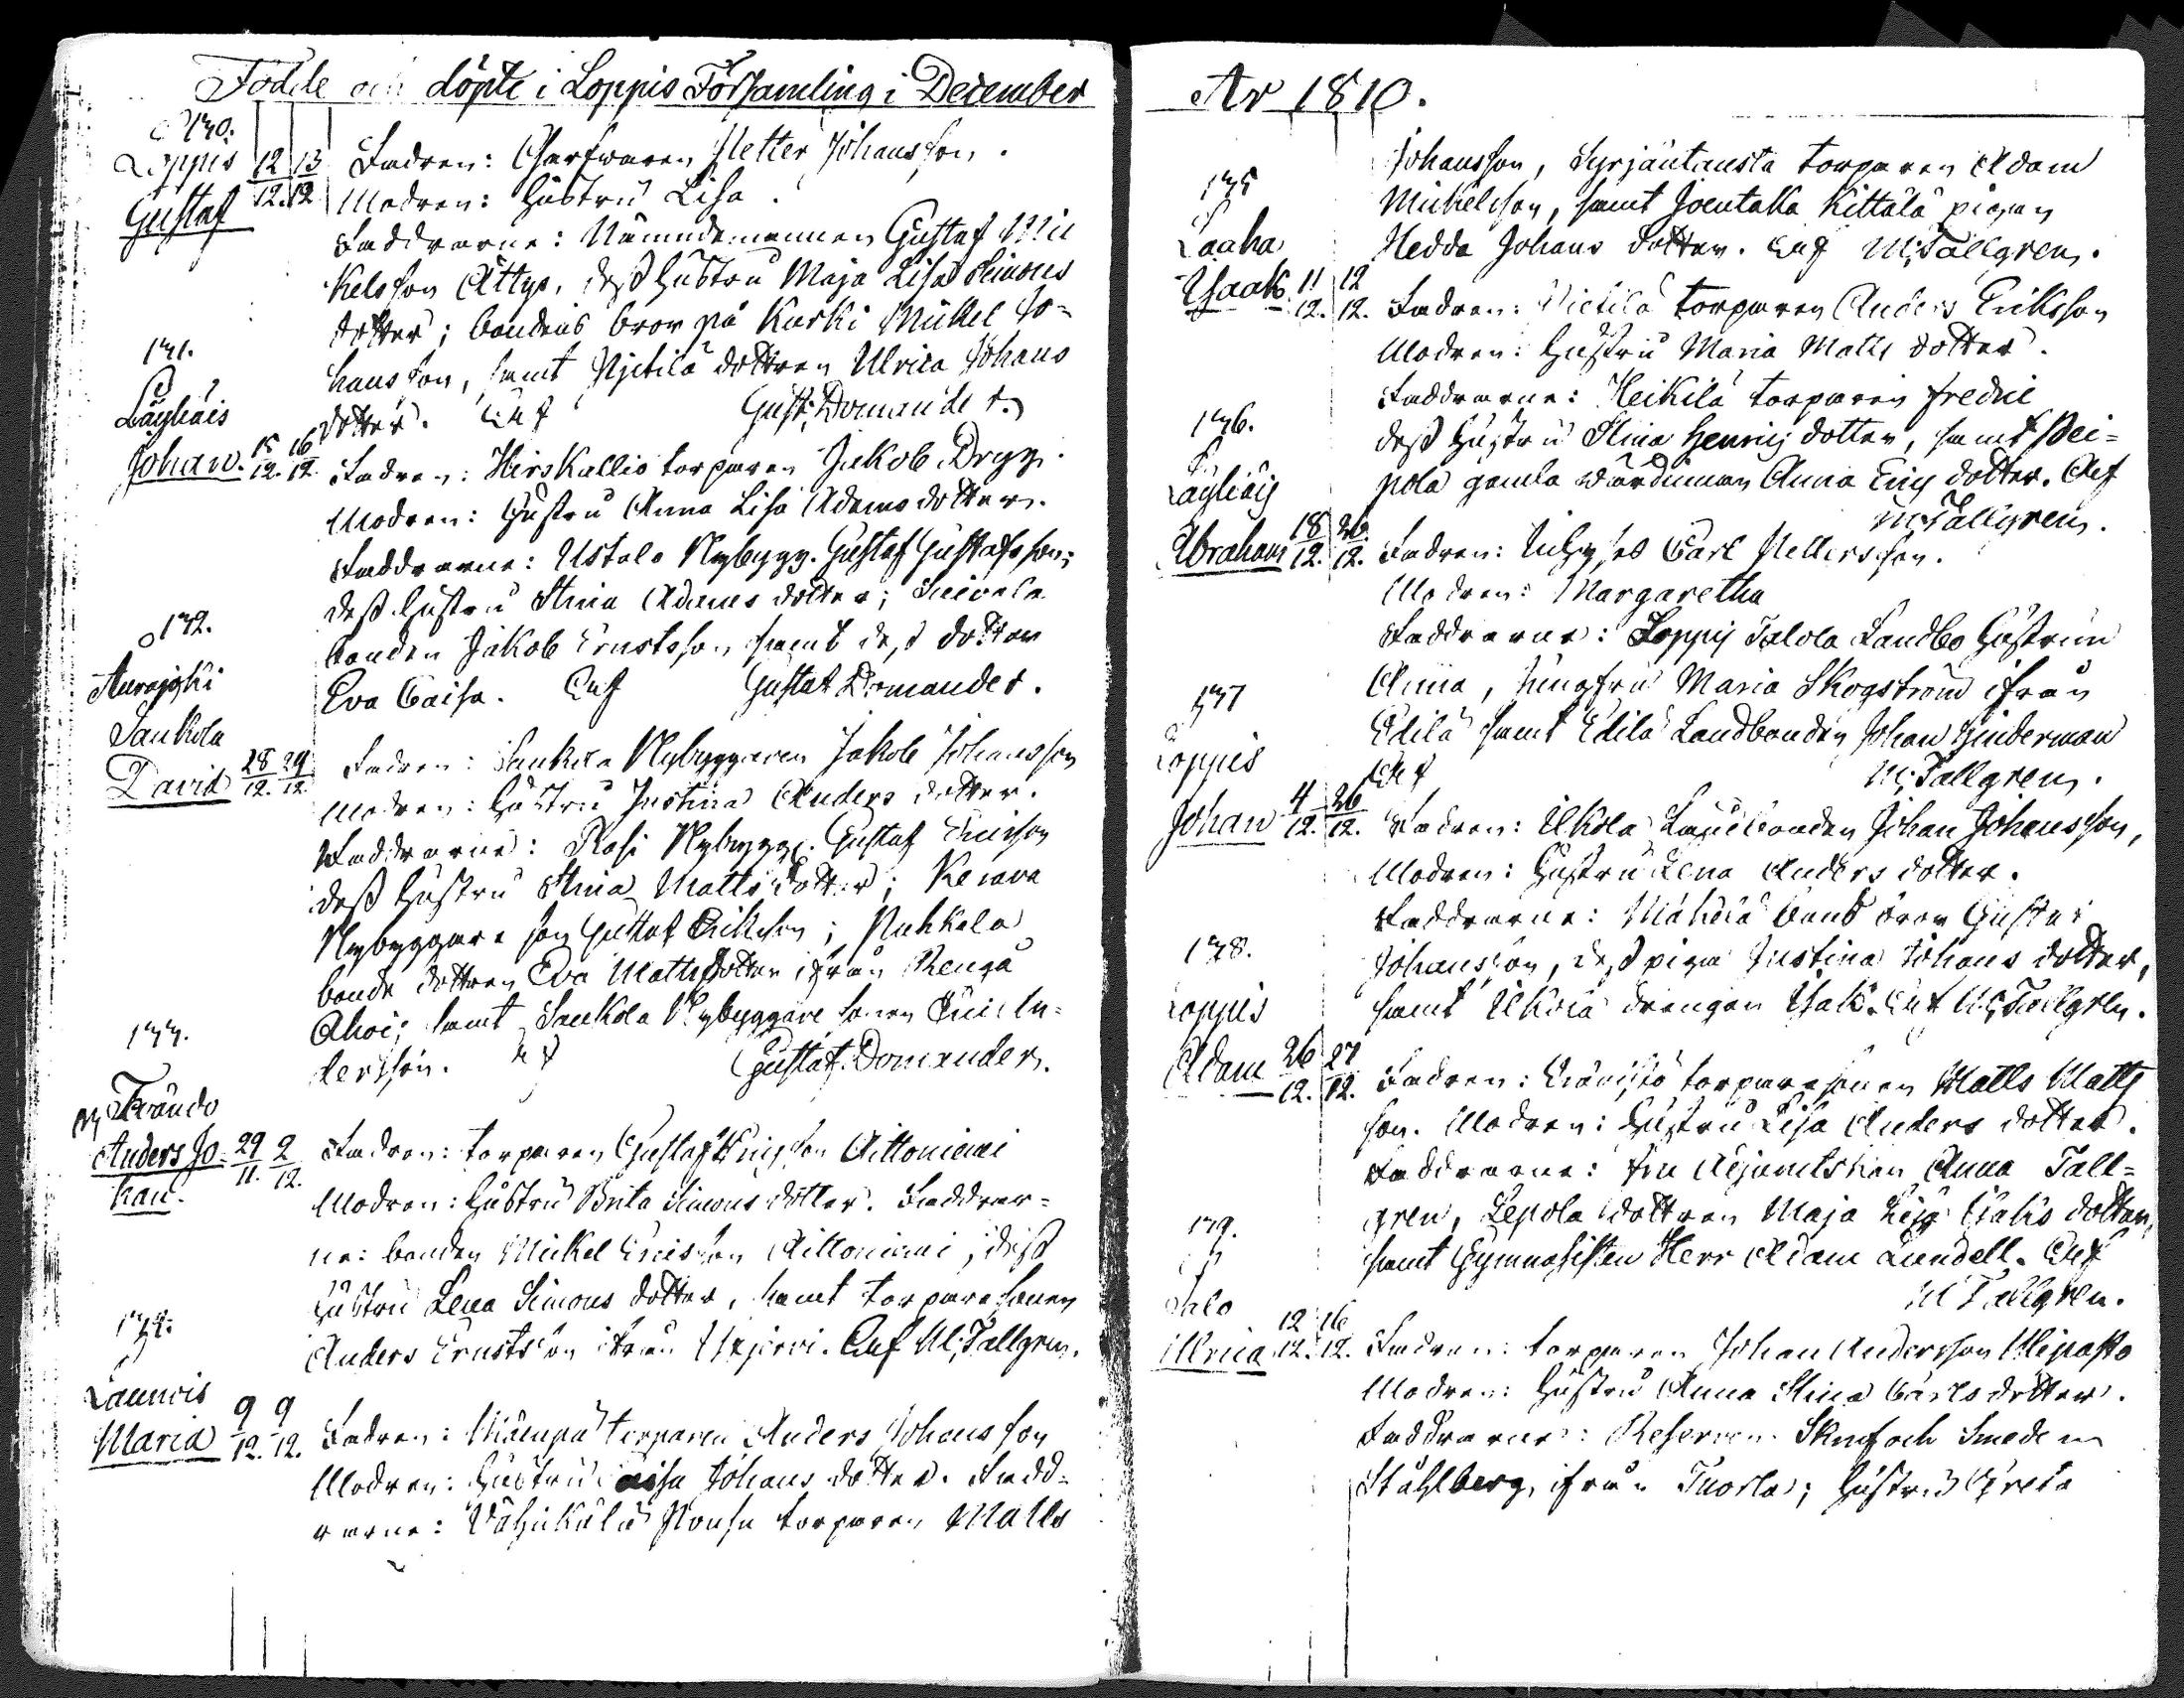 Födde och döpte i Loppis Församling i December
170.
Loppis 12/12. 13/12 Fadren: Garfwaren Petter Johansson.
Gustaf Modren: Hustru Lisa.
Faddrarne: Nämndemannen Gustaf Mic
kelsson Ättys, dess hustru Maja Lisa Simons
dotter; bondens bror på Kurki Mickel Jo-
171. hansson, samt Pjetilä dottren Ulrica Johans
Läyliäis dotter. Gust: Domander.
Johan. 15/12. 16/12. Fadren: Hirskallio torparen Jakob
Modren: Hustru Anna Lisa Adamsdotter.
Faddrarne: Ustalo Nybygg. Gustaf Gustafsson;
dess hustru Stina Adams dotter;
172. bonden Jakob Ernstsson samt dess dotter
Eva Caisa. Gustaf Domander.
Sankola
David 28/12. 29/12. Fadren: Sankola Nybyggaren Jakob Johansson
Modren: Hustru Justina Anders dotter.
Faddrarne: Rasi Nybygg. Gustaf Ericsson
dess hustru Stina Matts dotter; Kerava
Nybyggare son Gustaf Eriksson; Puhkala
bonde dottren Eva Mattsdotter ifrån Renga
Ahoi; samt Sankola Nybyggare sonen
173. dersson. Gustaf Domander.
Anders Jo- 29/11. 2/12. Fadren: torparen Gustaf Ericsson Aittoniemi
han. Modren: Hustru Brita Simons dotter. Faddrar-
ne: bonden Mickel Ericsson Aittoniemi, dess
hustru Lena Simons dotter, samt torpare sonen
174. Anders Ernstson ifrån M: Tallgren.
Launois
Maria 9/12. 9/12. Fadren: torparen Anders Johansson
Modren: Hustru Caisa Johans dotter. Fadd-
rarne: torparen Matts
År 1810.
Johansson, Syrjäntausta torparen Adam
175 Mickelsson, samt Joentaka Kittälä pigan
Hedda Johans dotter. M: Tallgren.
Isaak. 11/12. 12/12. Fadren: Pietilä torparen Anders Eriksson
Modren: Hustru Maria Matts dotter.
Faddrarne: Heikilä torparen Fredric
176. dess hustru Stina Henrics dotter, samt Pei-
Läyliäis pola gamla wärdinnan Anna Erics dotter.
M: Tallgren.
Abraham 18/12. 20/12. Fadren: Carl Pettersson.
Modren: Margaretha
Faddrarne: Loppis Talola Landbo hustrun
177 Anna, jungfru Maria Skogström ifrån
Edilä samt Edilä Landbonden Johan
Loppis M: Tallgren.
Johan 4/12. 26/12. Fadren: Ilkola bonden Johan Johansson,
Modren: Hustru Lena Anders dotter.
Faddrarne: bond bror Gustaf
178. Johansson, dess piga Justina Johans dotter,
Loppis samt Ilkola drengen Isak. M: Tallgren.
Adam 26/12. 27/12. Fadren: torparesonen Matts Matts
son. Modren: Hustru Lisa Anders dotter.
Faddrarne: Fru Adjunctskan Anna Tall-
179. gren, Lepola dottren Maja Lisa Isaks dotter,
samt Gymnasisten Herr Adam Lundell.
Salo M Tallgren.
Ulrica 12/12. 16/12. Fadren: torparen Johan Andersson
Modren: Hustru Anna Stina Carls dotter.
Faddrarne: och Smeden
Stahlberg, ifrån Tuorla; hustru Greta